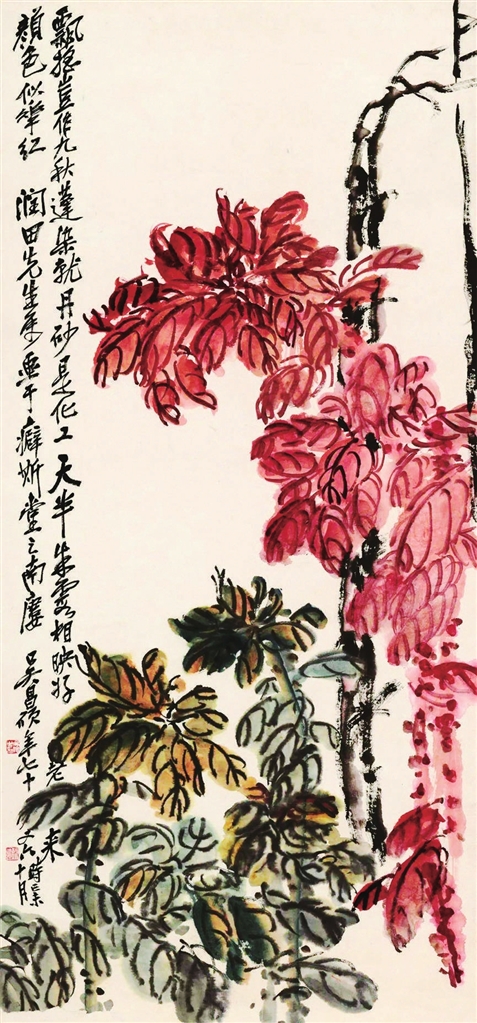 飄摇豈作九秋蓬染就丹砂是化工天半朱霞相映好老来
顏色似華紅 潤田先生属畫于癖斯堂之南廔 吳昌碩年七十又六時己未十月